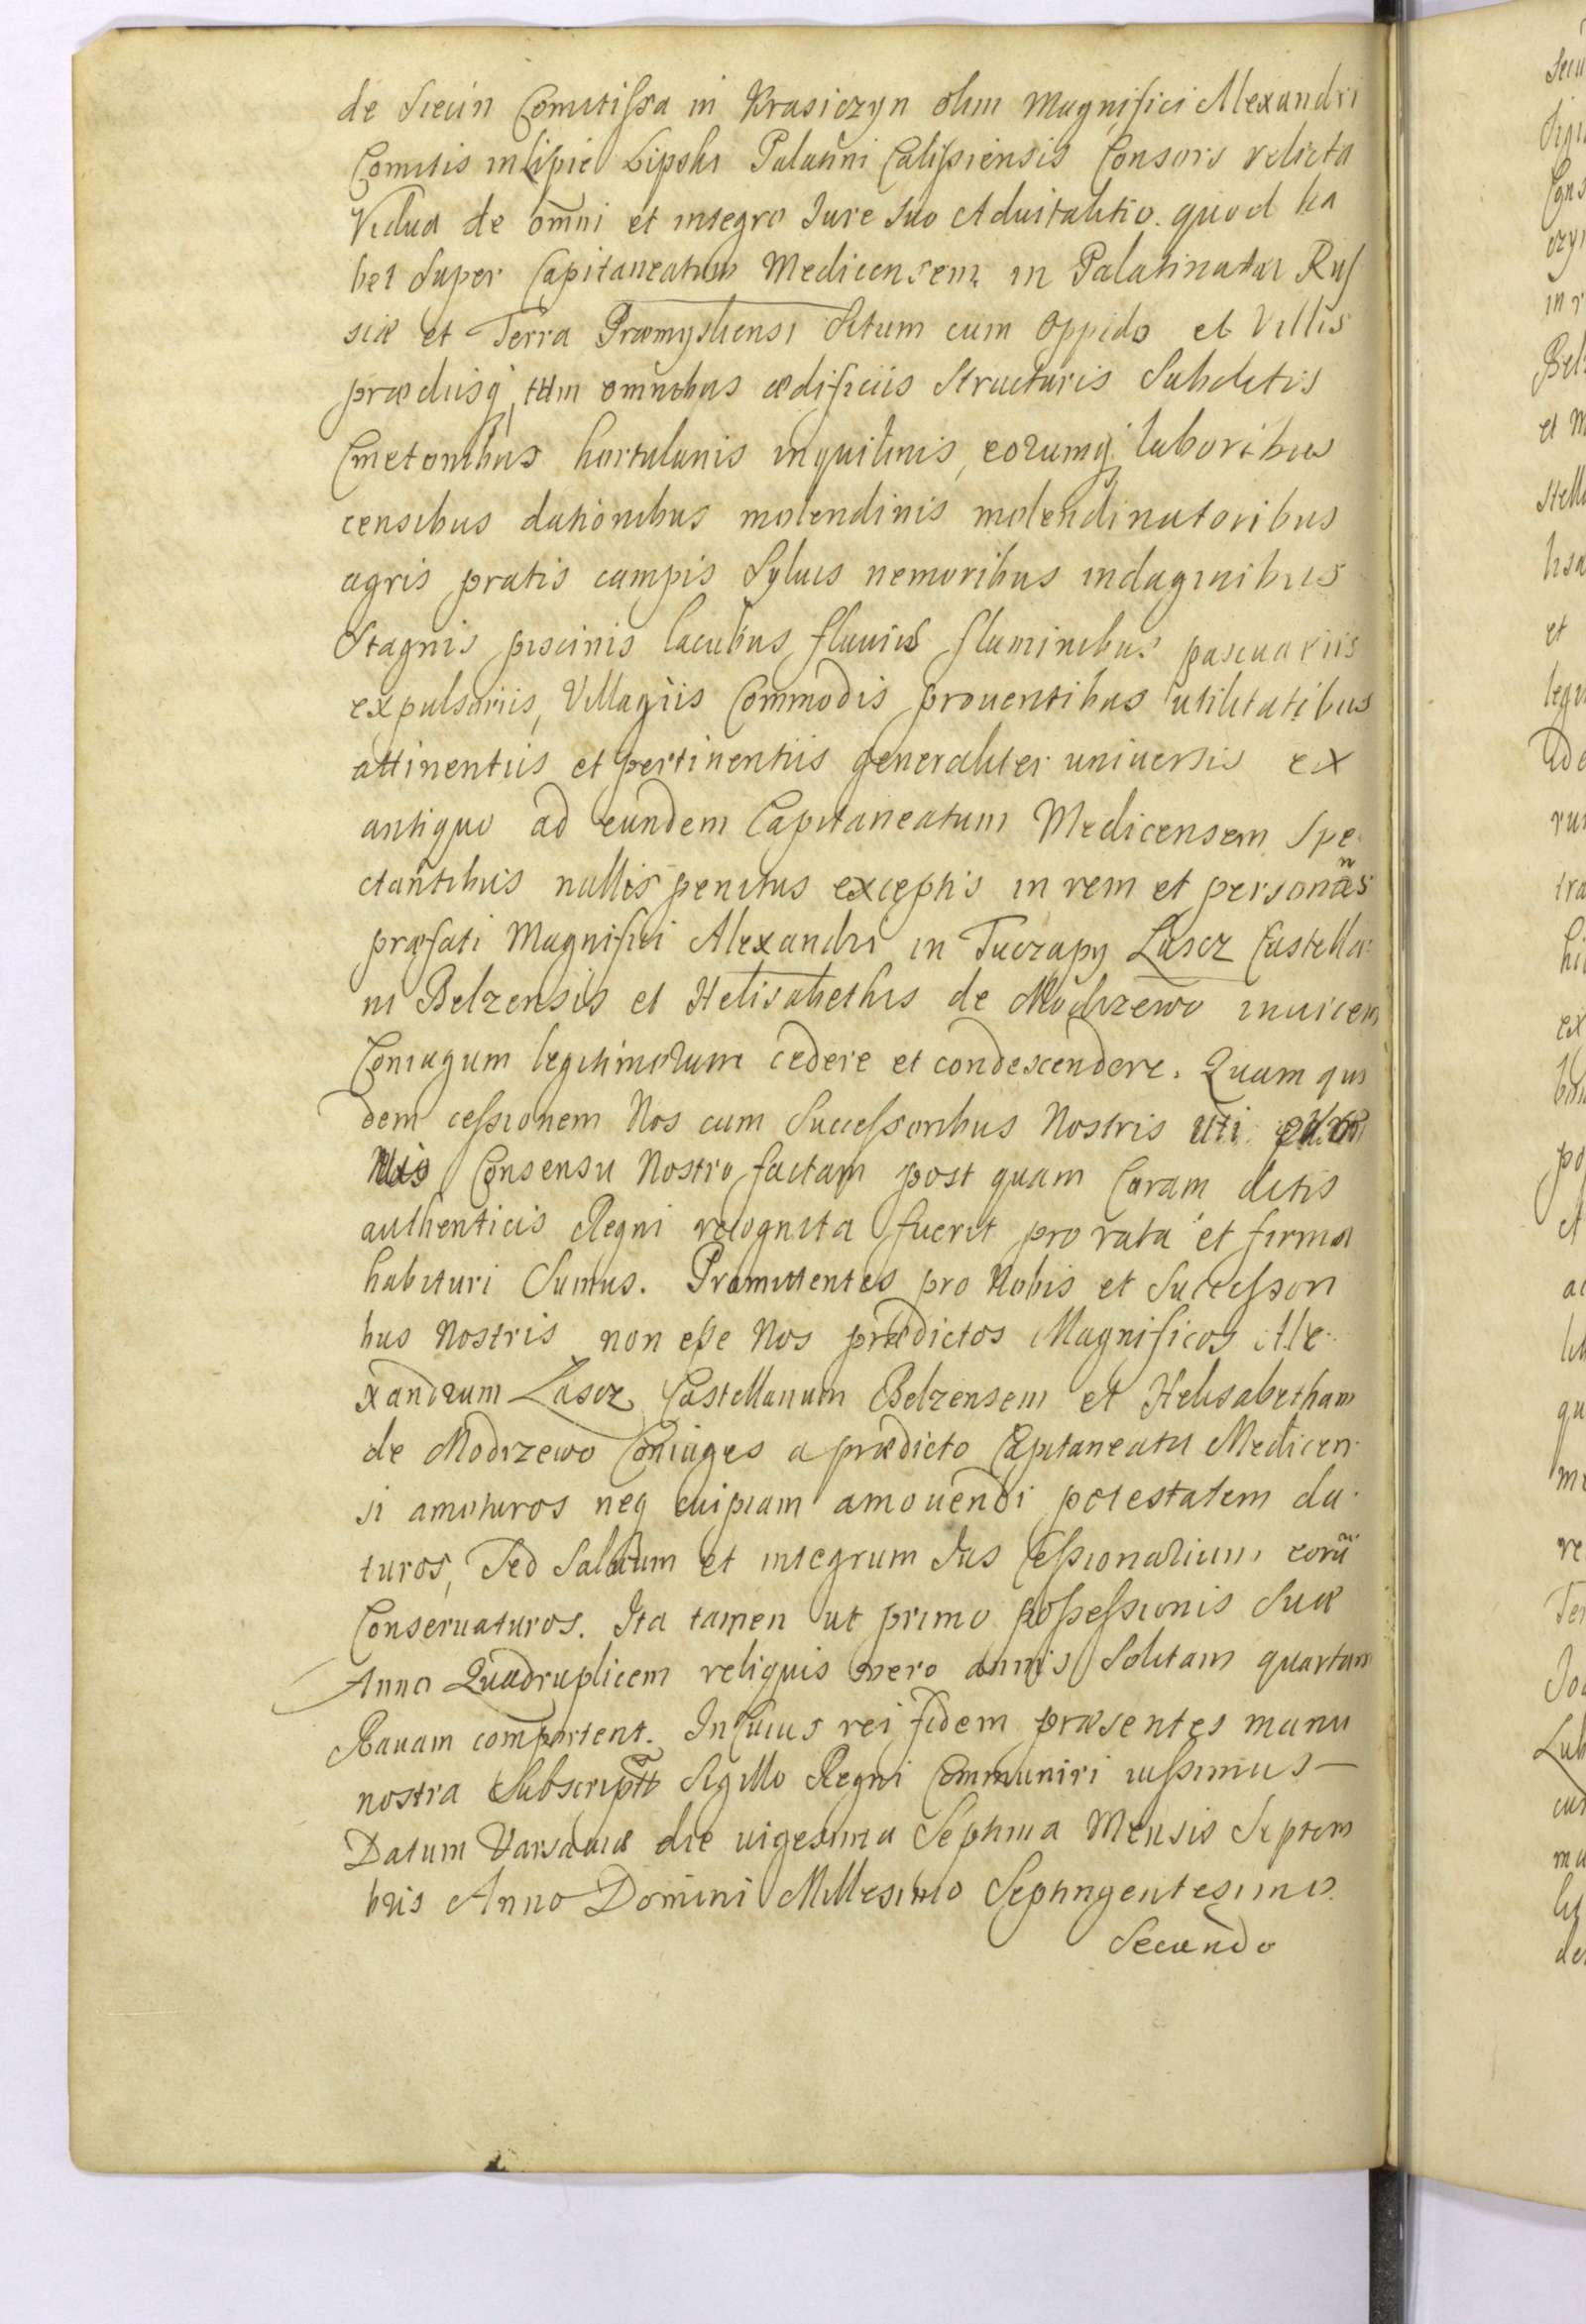 de Siecin Comitissa in Krasiczyn olim Magnifici Alexandri
Comitis in Lipie Lipski Palatini Calissiensis Consors relicta
Vidua de omni et integro Iure suo Aduitalitio quod ha
bet Super Capitaneatum Medicensem in Palatinatu Rus
siæ et Terra Præmysliensi Situm cum Oppido et Villis
prædiisq, tum omnibus ædificiis Structuris Subditis
Cmetonibus hortulanis inquilinis, eorumq laboribus
censibus dationibus molendinis molendinatoribus
agris pratis campis Syluis nemoribus indaginibus
Stagnis piscinis lacubus fluuiis fluminibus pascuariis
expulsoriis, Villagiis Commodis prouentibus utilitatibus
attinentiis et pertinentiis generaliter uniuersis ex
antiquo ad eundem Capitaneatum Medicensem Spe
ctantibus nullis penitus exceptis in rem et personas
præfati Magnifici Alexandri in Tuczapy Lascz Castella
ni Belzensis et Helisabethis de Modrzewo inuicem
Coniugum legitimorum cedere et condescendere. Quam qui
dem cessionem Nos cum Successoribus Nostris uti
Consensu Nostro factam post quam Coram Actis
authenticis Regni recognita fuerit pro rata et firma
habituri Sumus. Promittentes pro Nobis et Successori
bus Nostris non esse Nos prædictos Magnificos Ale
xandrum Lascz Castellanum Belzensem et Helisabetham
de Modrzewo Coniuges a prædicto Capitaneatu Medicen
si amoturos neq cuipiam amouendi potestatem da
turos, Sed Saluum et integrum Ius Cessionarium eorũ
Conseruaturos. Ita tamen ut primo possessionis Suæ
Anno Quadruplicem reliquis vero annis Solitam quartam
Rauam comportent. In Cuius rei fidem præsentes manu
nostra Subscriptt Sigillo Regni Communiri iussimus —
Datum Varsauiæ die uigesima Septima Mensis Septem
bris Anno Domini Millesimo Septingentesimo
Secundo